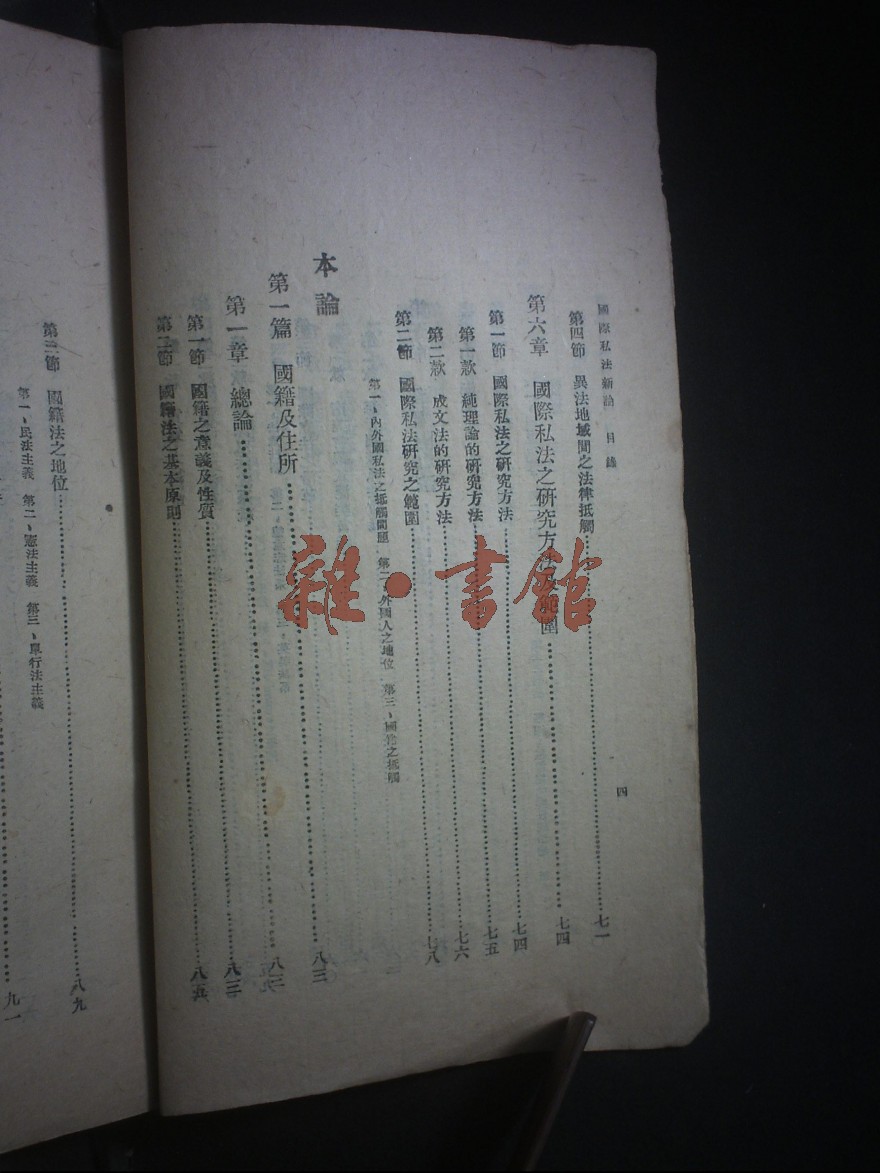 國際私法新論 目錄
四
第四節 異法地域間之法律抵觸……七一
第六章 國際私法之研究方法及範圍……七四
第一節 國際私法之研究方法……七四
第一款 純理論的研究方法……七五
第二款 成文法的研究方法……七六
第二節 國際私法研究之範圍……七八
第一、內外國私法之抵觸問題 第二、外國人之地位 第三、國籍之抵觸
本論……八三
第一篇 國籍及住所……八三
第一章 總論……八三
第一節 國籍之意義及性質……八三
第二節 國籍法之基本原則……八五
第三節 國籍法之地位……八九
第一、民法主義 第二、憲法主義 第三、單行法主義
九一
雜·書館